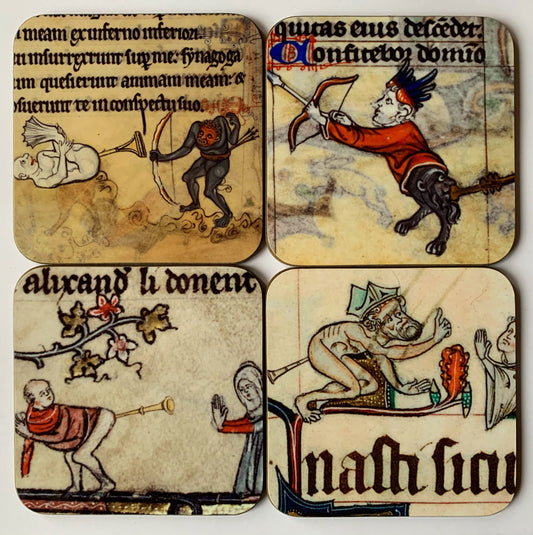 meam ex inferno inferiori.
insurrexerunt sup me. synagoga
um quesierunt animam meam: &
osuerunt te in conspectu suo.
quitas eius descēdet.
Confitebor domino
alixand' li donent
nasti sicu